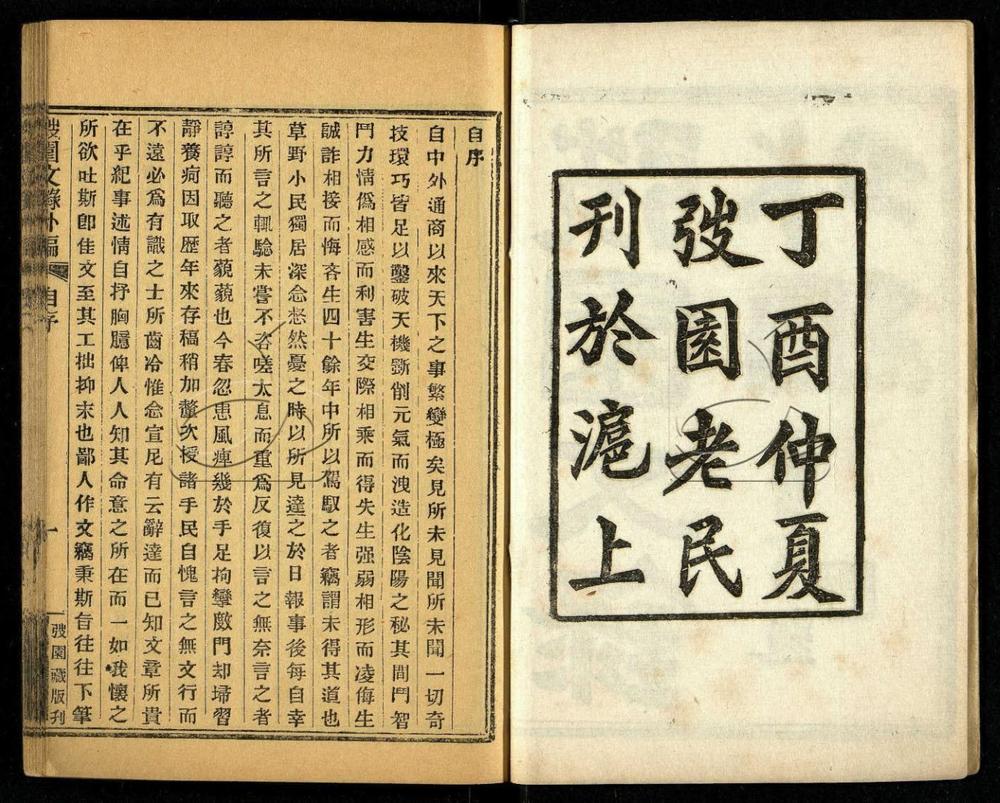 丁酉仲夏
弢園老民
刊於滬上
自序
自中外通商以來天下之事繁變極矣見所未見聞所未聞一切奇
技環巧皆足以鑿破天機斵削元氣而洩造化陰陽之秘其間鬥智
鬥力情僞相感而利害生交際相乘而得失生强弱相形而凌侮生
誠詐相接而悔吝生四十餘年中所以駕馭之者竊謂未得其道也
草野小民獨居深念怒然憂之時以所見達之於日報事後每自幸
其所言之輒驗未嘗不咨嗟太息而重爲反復以言之無奈言之者
諄諄而聽之者藐藐也今春忽患風痺幾於手足拘攣敲門却埽習
靜養疴因取歷年來存稿稍加釐次授諸手民自愧言之無文行而
不遠必爲有識之士所齒冷惟念宣尼有云辭達而已知文章所貴
在乎紀事述情自抒胸臆俾人人知其命意之所在而一如我懷之
所欲吐斯卽佳文至其工拙抑末也鄙人作文竊秉斯旨往往下筆
弢園文錄外編
自序
一
弢園藏版刊